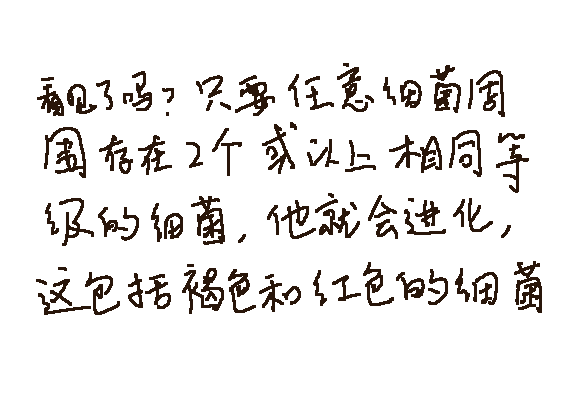 看见了吗？只要任意细菌周
围存在2个或以上相同等
级的细菌，他就会进化，
这包括褐色和红色的细菌